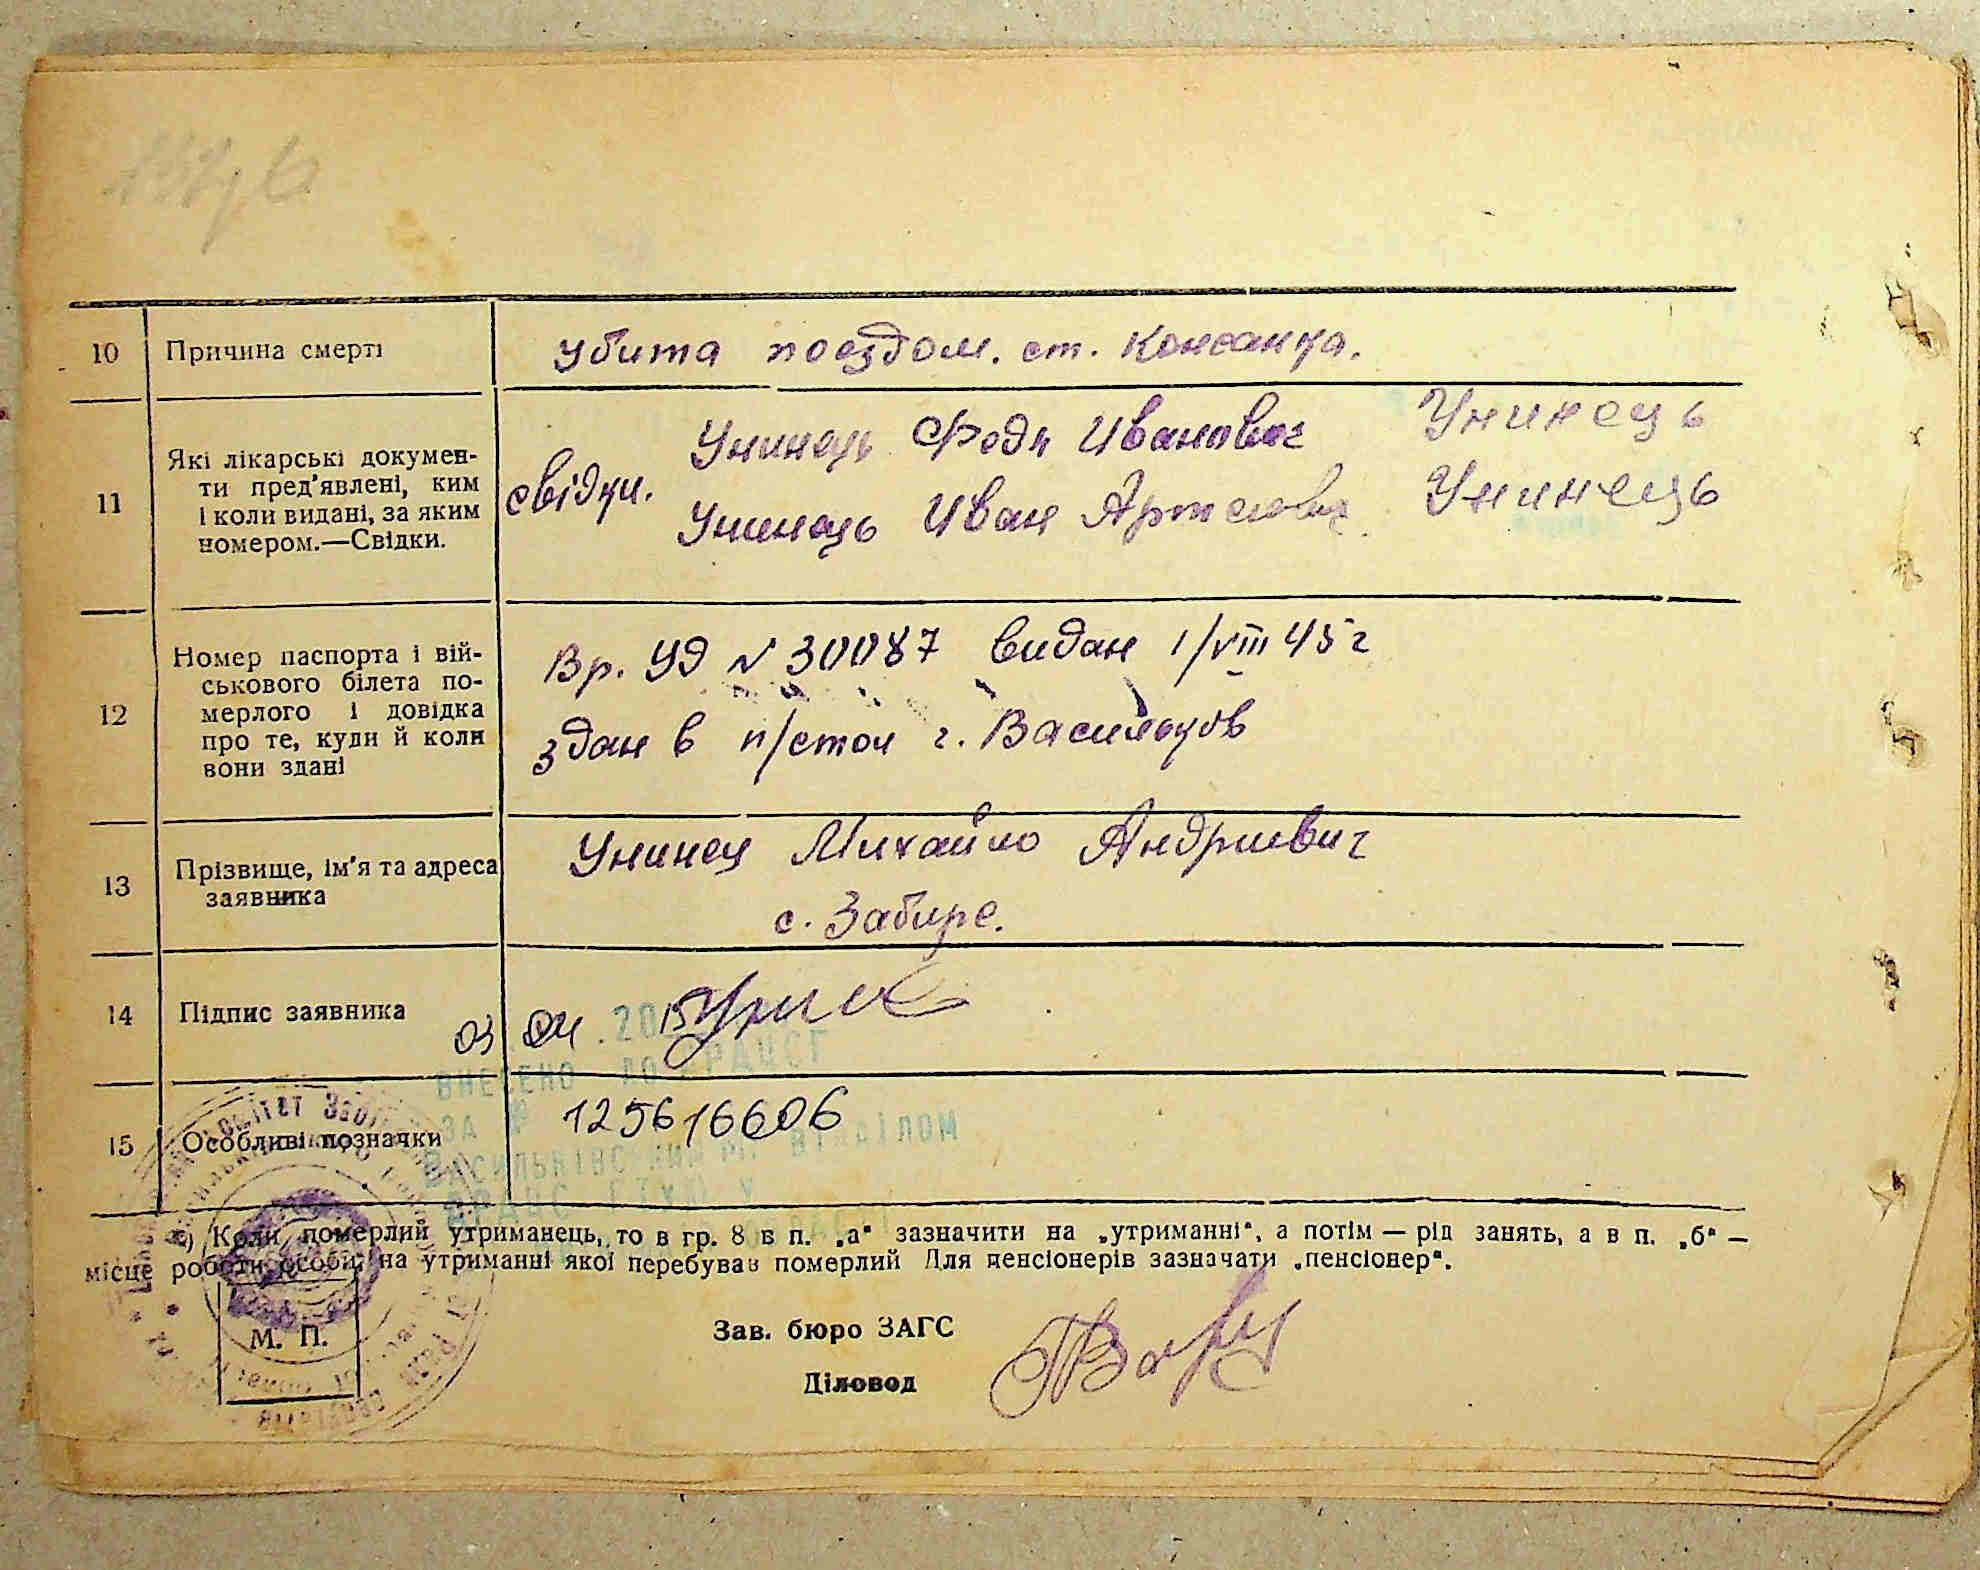 10 Причина смерті убита поездом. ст. Консанка.
11 Які лікарські докумен-
ти пред'явлені, ким
і коли видані, за яким
номером.—Свідки.
свідки. Унинець Федя Иванович Унинець
Унинець Иван Артемович Унинець
12 Номер паспорта і вій-
ськового білета по-
мерлого і довідка
про те, куди й коли
вони здані
Вр. УД № 30087 видан 1/VIII 45 г
здан в п/стол г. Васильков
13 Прізвище, ім'я та адреса
заявника
Унинец Михайло Андриевич
с. Забире.
14 Підпис заявника
03 04 . 2015
ВНЕСЕНО ДО ДРАЦСГ
15 Особливі позначки
ЗА № 125616606
ВАСИЛЬКІВСЬКИМ РП ВІДДІЛОМ
*) Коли померлий утриманець, то в гр. 8 в п. „а" зазначити на „утриманні", а потім — рід занять, а в п. „б" —
місце роботи особи, на утриманні якої перебував померлий Для пенсіонерів зазначати „пенсіонер".
М. П.
Зав. бюро ЗАГС
Діловод